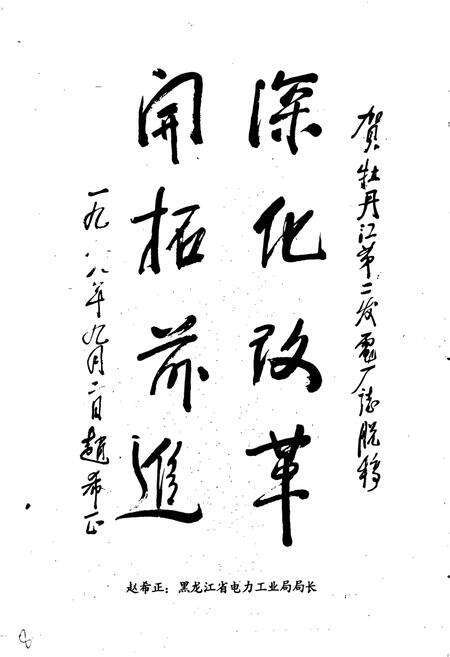 賀牡丹江第二发電厂志脱稿
深化改革
開拓前進
一九八八年九月二日趙希正
赵希正：黑龙江省电力工业局局长